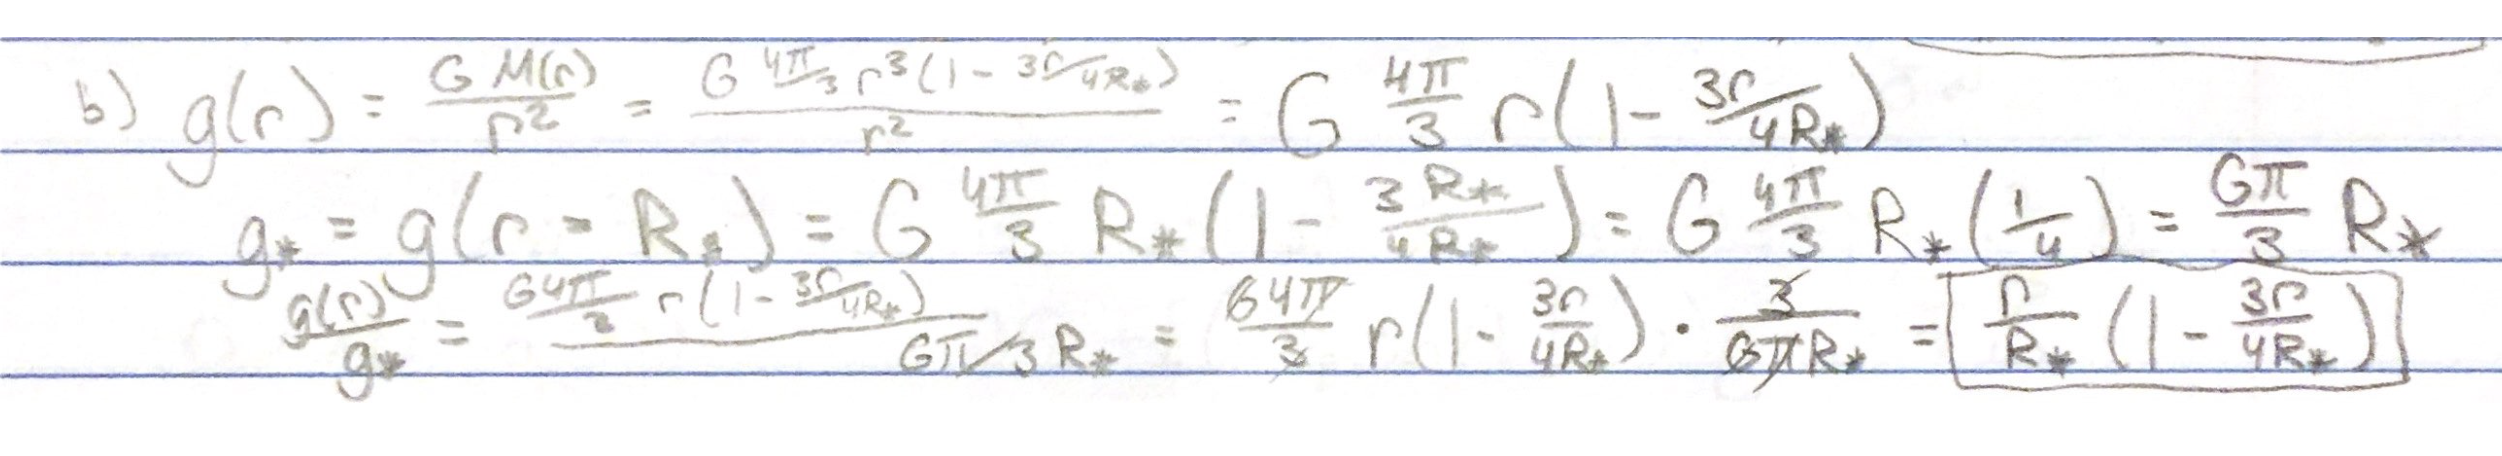 b) g(r) = G M(r) / r² = G 4π/3 r³ (1 - 3r/4R*) / r² = G 4π/3 r (1 - 3r/4R*)
g* = g(r = R*) = G 4π/3 R* (1 - 3R*/4R*) = G 4π/3 R* (1/4) = Gπ/3 R*
g(r)/g* = G4π/3 r (1 - 3r/4R*) / Gπ/3 R* = G4π/3 r (1 - 3r/4R*) · 3/GπR* = r/R* (1 - 3r/4R*)